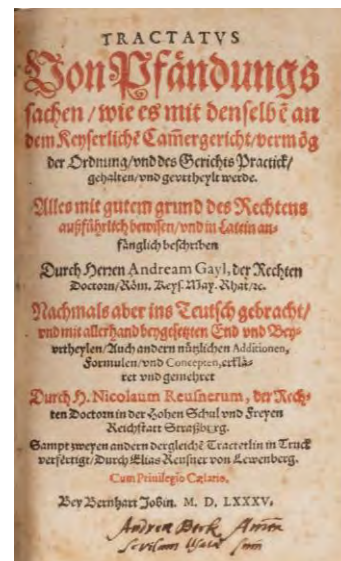 TRACTATVS
Von Pfändungs
sachen / wie es mit denselbẽ an
dem Keyserlichẽ Cam̃ergericht / vermög
der Ordnung / vnd des Gerichts Practick /
gehalten / vnd geurtheylt werde.
Alles mit gutem grund des Rechtens
außführlich bewisen / vnd in Latein an-
fänglich beschriben
Durch Herren Andream Gayl, der Rechten
Doctorn / Röm. Keys. May. Rhat / ꝛc.
Nachmals aber ins Teutsch gebracht /
vnd mit allerhand beygesetzten End vnd Bey-
vrtheylen / Auch andern nützlichen Additionen,
Formulen / vnd Concepten, erklä-
ret vnd gemehret
Durch H. Nicolaum Reusnerum, der Rech-
ten Doctorn in der Hohen Schul vnd Freyen
Reichstatt Straßburg.
Sampt zweyen andern dergleichẽ Tractetlin in Truck
verfertigt / Durch Elias Reusner von Lewenberg.
Cum Priuilegio Cæsareo.
Bey Bernhart Jobin. M. D. LXXXV.
Andrea Berk